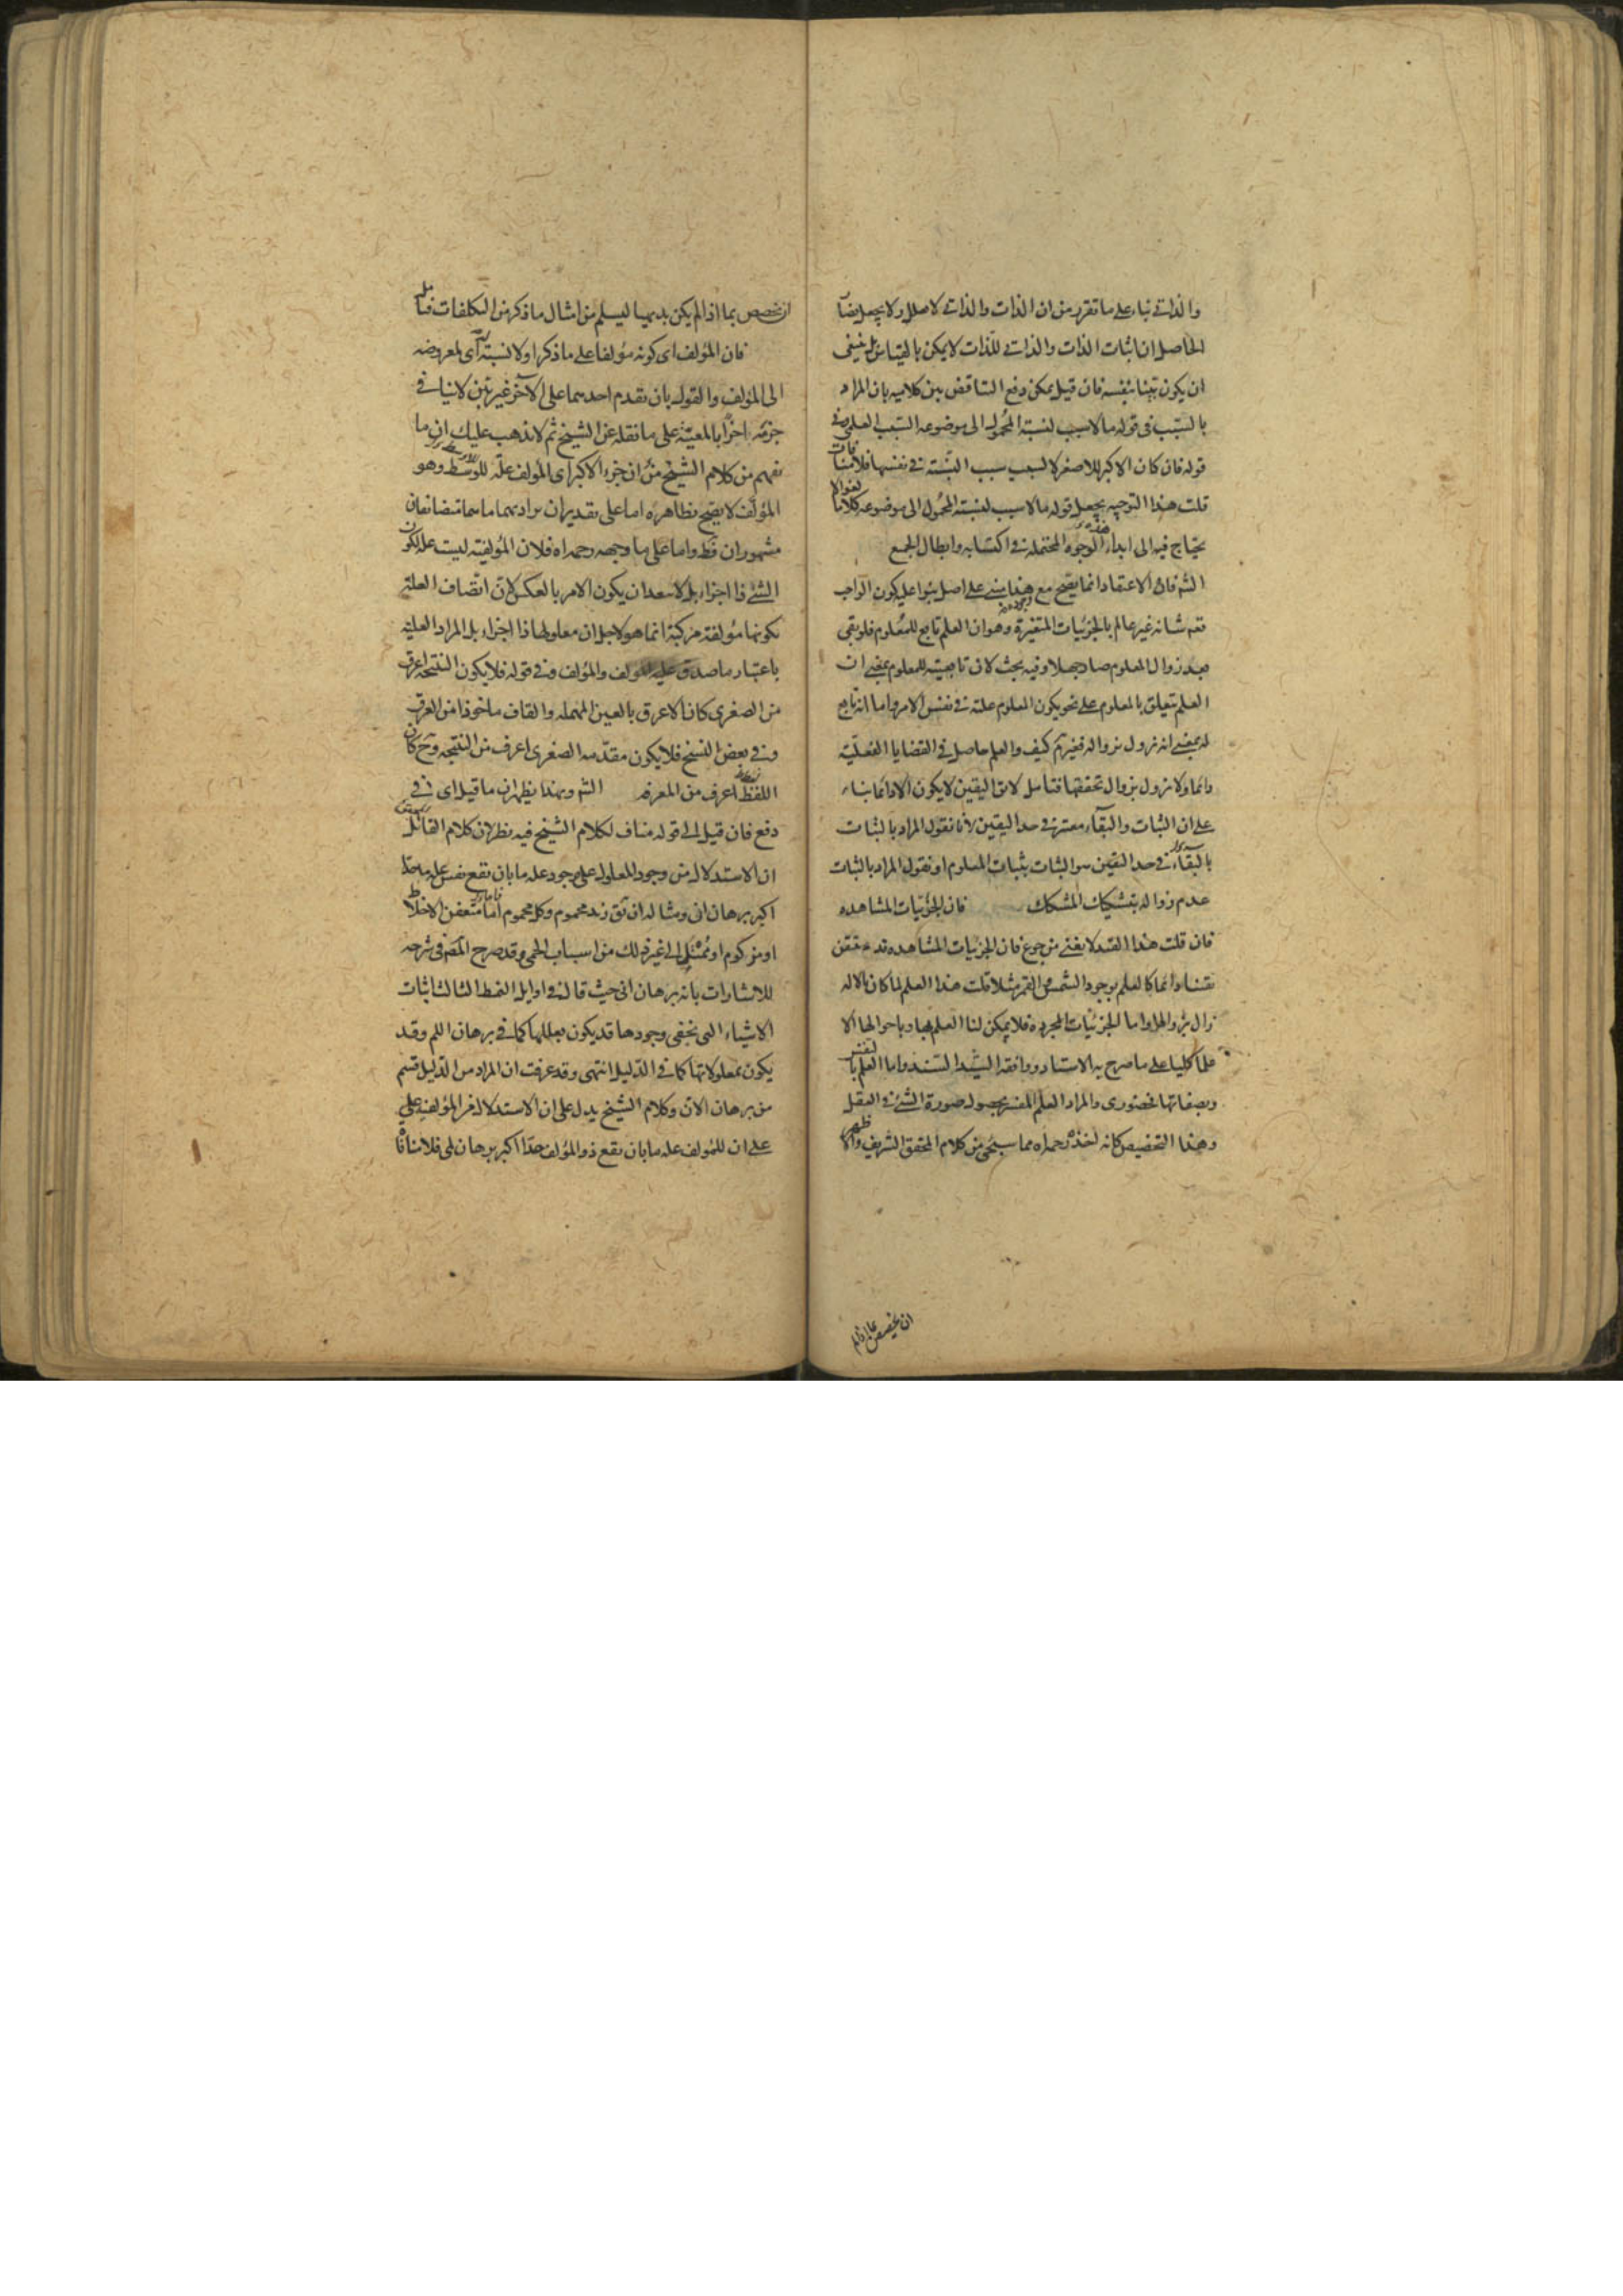 والذاتي بناء على ما تقرر من ان الذات والذاتي لا يعلل ولا يجعل ايضا
الحاصل ان اثبات الذات والذاتي للذات لا يمكن بالقياس بل ينبغي
ان يكون بينا بنفسه فان قيل يمكن دفع التناقض بين كلاميه بان المراد
بالسبب في قوله ما لا سبب لنسبة المحمول الى موضوعه السبب العلمي وفي
قوله فان كان الاكبر للاصغر لا لسبب سبب النسبة في نفسها فلا منافات
قلت هذا التوجيه يجعل قوله ما لا سبب لنسبة المحمول الى موضوعه كلاما لغوا لا
يحتاج فيه الى ابداء هذه الوجوه المحتملة في اكتسابه وابطال الجميع
الشم فان الاعتقاد انما يصح مع وجوده هذا مبني على اصل بنوا عليه كون الواجب
تعم شانه غير عالم بالجزئيات المتغيرة وهو ان العلم تابع للمعلوم فلو بقي
بعد زوال المعلوم صار جهلا وفيه بحث لان تابعيته للمعلوم بمعنى ان
العلم تتعلق بالمعلوم على نحو يكون المعلوم علته في نفس الامر واما انه تابع
له بمعنى انه يزول بزواله فغير تم كيف والعلم حاصل في القضايا الفعلية
دائما ولا يزول بزوال تحققها فتامل لان اليقين لا يكون الا دائما بناء
على ان الثبات والبقاء معتبر في حد اليقين لانا نقول المراد بالثبات
بالبقاء في حد اليقين هو الثبات بثبات المعلوم او نقول المراد بالثبات
عدم زواله بتشكيك المشكك فان الجزئيات المشاهده
فان قلت هذا القيد لا يغني من جوع فان الجزئيات المشاهده قد
يقينا دائما كالعلم بوجود الشمس والقمر مثلا قلت هذا العلم لما كان بالاله
زال بزوالها واما الجزئيات المجرده فلا يمكن لنا العلم بها وباحوالها الا
علما كليا على ما صرح به الاستاد ووافقه السيد السند واما العلم بالنفس
وبصفاتها فحضوري والمراد العلم المفسر بحصول صورة الشئ في العقل
وهذا التخصيص كانه اخذه رحمه اه مما سيجئ من كلام المحقق الشريف والا ظهر
ان يخصص بما اذا لم
ان يخصص بما اذا لم يكن بديهيا ليسلم من امثال ما ذكر من التكلفات فتامل
فان المؤلف اى كونه مؤلفا على ما ذكر اولا نسبة اى لمعروضه
الى المؤلف والقول بان تقدم احدهما على الآخر غير بين لا ينافي
جزمه اخرا بالمعية على ما نقله عن الشيخ ثم لا يذهب عليك ان ما
يفهم من كلام الشيخ من ان جزء الاكبر اى المؤلف علة للاوسط وهو
المؤلف لا يصح بظاهره اما على تقدير ان يراد بهما ما هما متضايفان
مشهوران فظ واما على ما وجهه رحمه اه فلان المؤلفية ليست علة لكون
الشئ ذا اجزاء بل لا يبعد ان يكون الامر بالعكس لان اتصاف العلة
بكونها مؤلفة مركبة انما هو لاجل ان معلولها ذا اجزاء بل المراد العلية
باعتبار ما صدق عليه المؤلف والمؤلف وفي قوله فلا يكون النتيجة اعرق
من الصغرى كان الاعرق بالعين المهملة والقاف ماخوذا من العرق
وفي بعض النسخ فلا يكون مقدمه الصغرى اعرف من النتيجه وح كان
اللفظ اعرف من المعرفه الشم وبهذا يظهر ان ما قيل اى في
دفع فان قيل الى قوله مناف لكلام الشيخ فيه نظر لان كلام القائل
ان الاستدلال من وجود المعلول على وجود عله ما بان تقع نفس عله ما حدا
اكبر برهان اني ومثاله ان تق زيد محموم وكل محموم اما متعفن الاخلاط
او مزكوم او ممتلى الى غير ذلك من اسباب الحمى وقد صرح المص في شرحه
للاشارات بانه برهان اني حيث قال في اوايل النمط الثالث اثبات
الاشياء التي تخفى وجودها قد يكون بعللها كما في برهان اللم وقد
يكون بمعلولاتها كما في الدليل انتهى وقد عرفت ان المراد من الدليل قسم
من برهان الان وكلام الشيخ يدل على ان الاستدلال من المؤلفية على
على ان للمؤلف عله ما بان تقع ذو المؤلف حدا اكبر برهان لمي فلا منافا